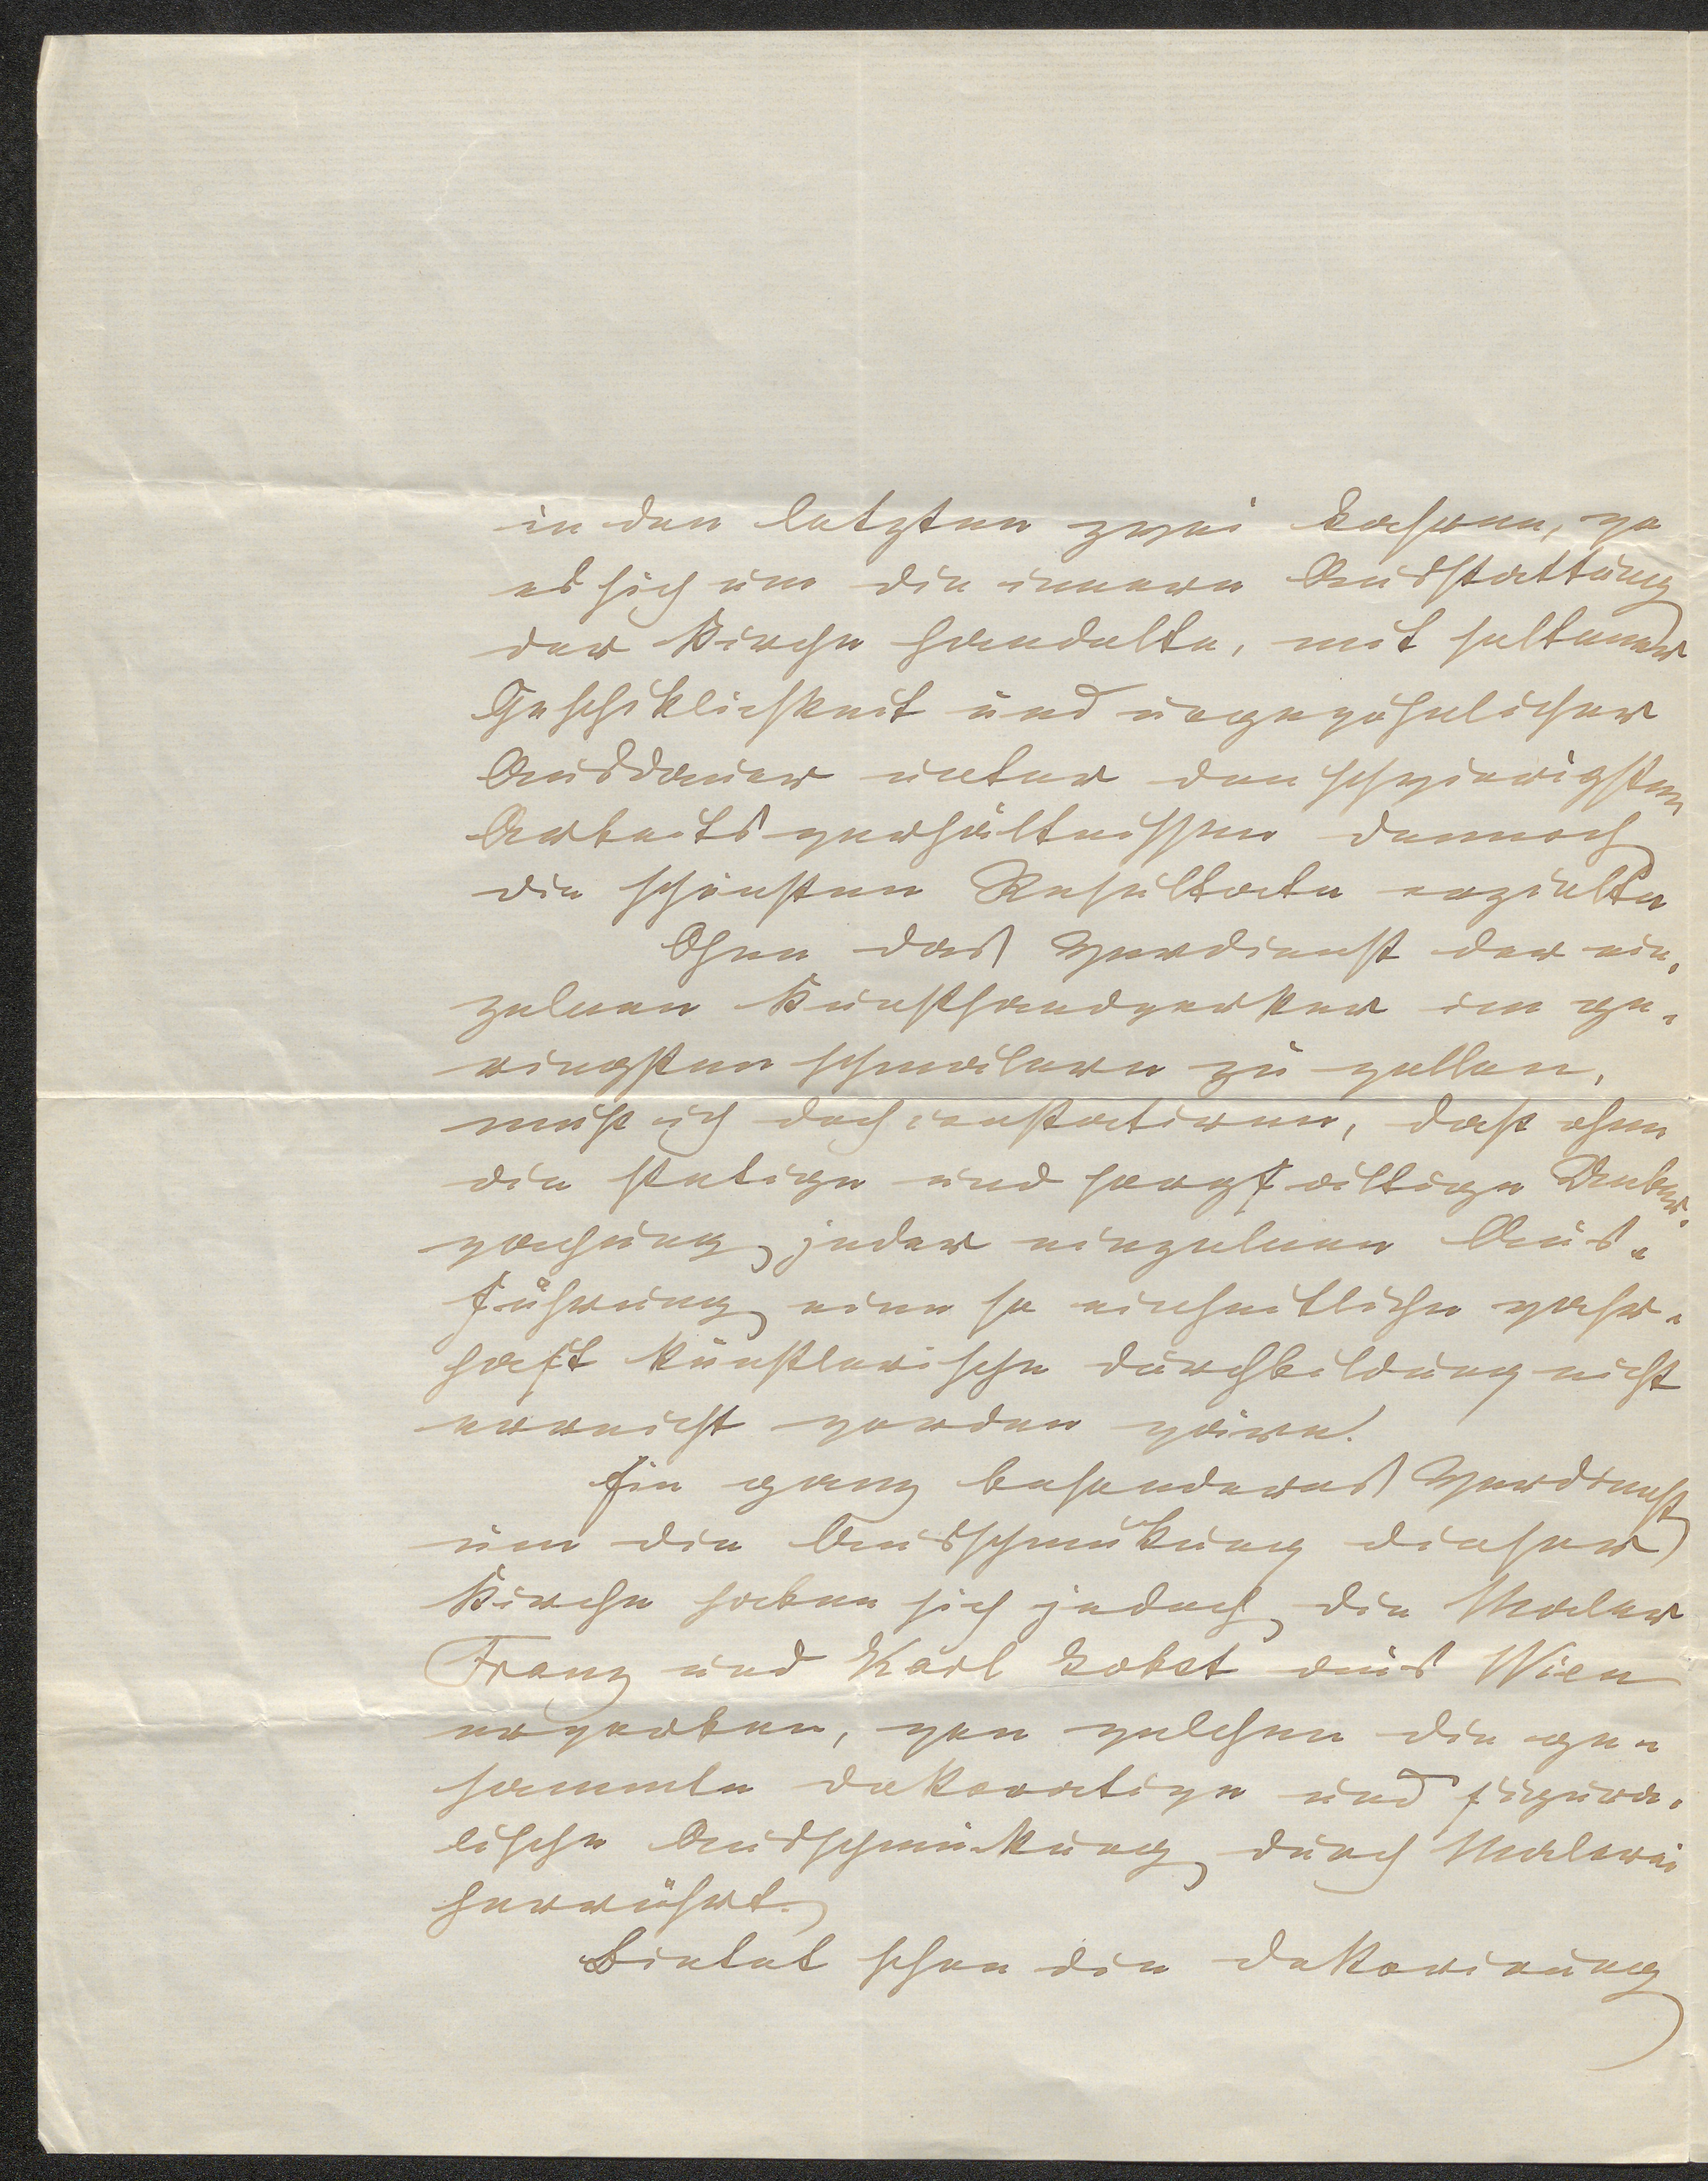 in den letzten zwei Jahren, wo
es sich um die innere Ausstattung
der Kirche handelte, mit seltener
Geschiklichkeit und ungewöhnlicher
Ausdauer unter den schwierigsten
Arbeitsverhältnissen dennoch
die schönsten Resultate erzielte
Ohne das Verdienst der ein-
zelnen Kunsthandwerker im ge-
ringsten schmälern zu wollen,
muß ich doch constatiren, daß ohne
die stetige und sorgfältige Ueber-
wachung jeder einzelnen Aus-
führung eine so einheitliche wahr-
haft künstlerische Durchbildung nicht
erreicht worden wäre.
Ein ganz besonderes Verdienst
um die Ausschmükung dieser
Kirche haben sich jedoch die Maler
Franz und Karl Jobst aus Wien
erworben, von welchen die ge-
sammte dekorative und figura-
lische Ausschmückung durch Malerei
herrührt.
Bietet schon die Dekorirung